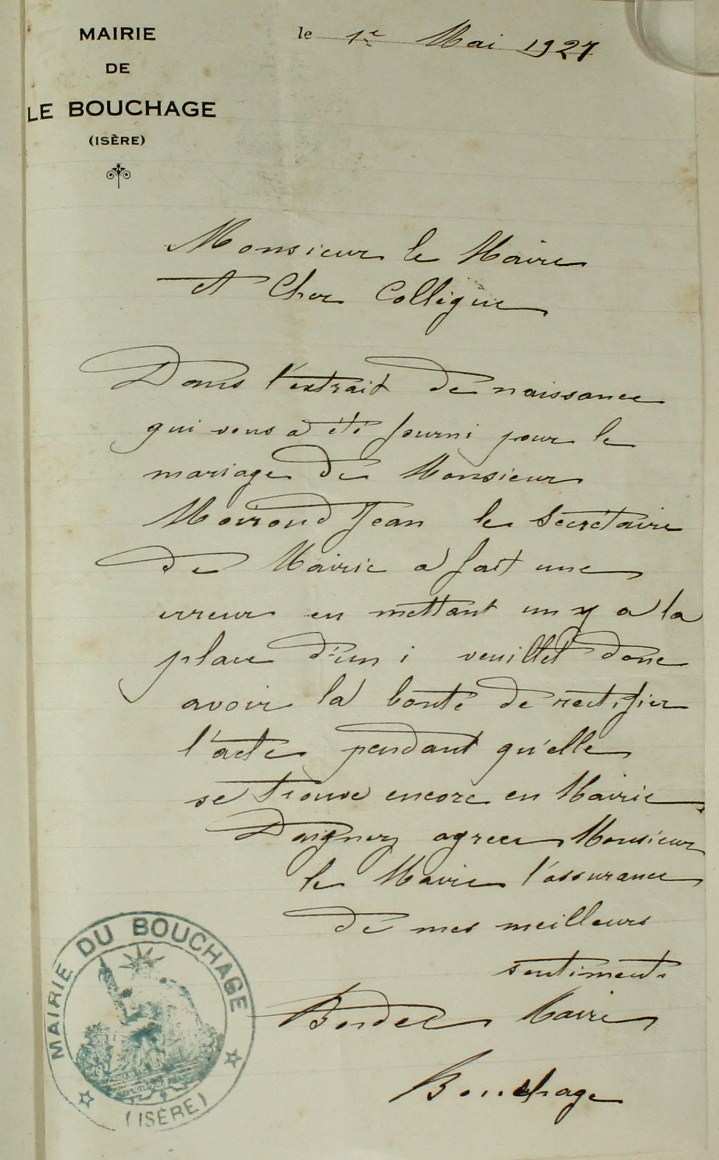 MAIRIE
DE
LE BOUCHAGE
(ISÈRE)
le 1er Mai 1927
Monsieur le Maire
et Cher Collègue
Dans l'extrait de naissance
qui vous a été fourni pour le
mariage de Monsieur
Moiroud Jean le Secrétaire
de Mairie a fait une
erreur en mettant un y a la
place d'un i veuillet donc
avoir la bonté de rectifier
l'acte pendant qu'elle
se trouve encore en Mairie.
Daignez agréer Monsieur
le Maire l'assurance
de mes meilleurs
sentiments
Maire
Bouchage
MAIRIE DU BOUCHAGE
(ISÈRE)